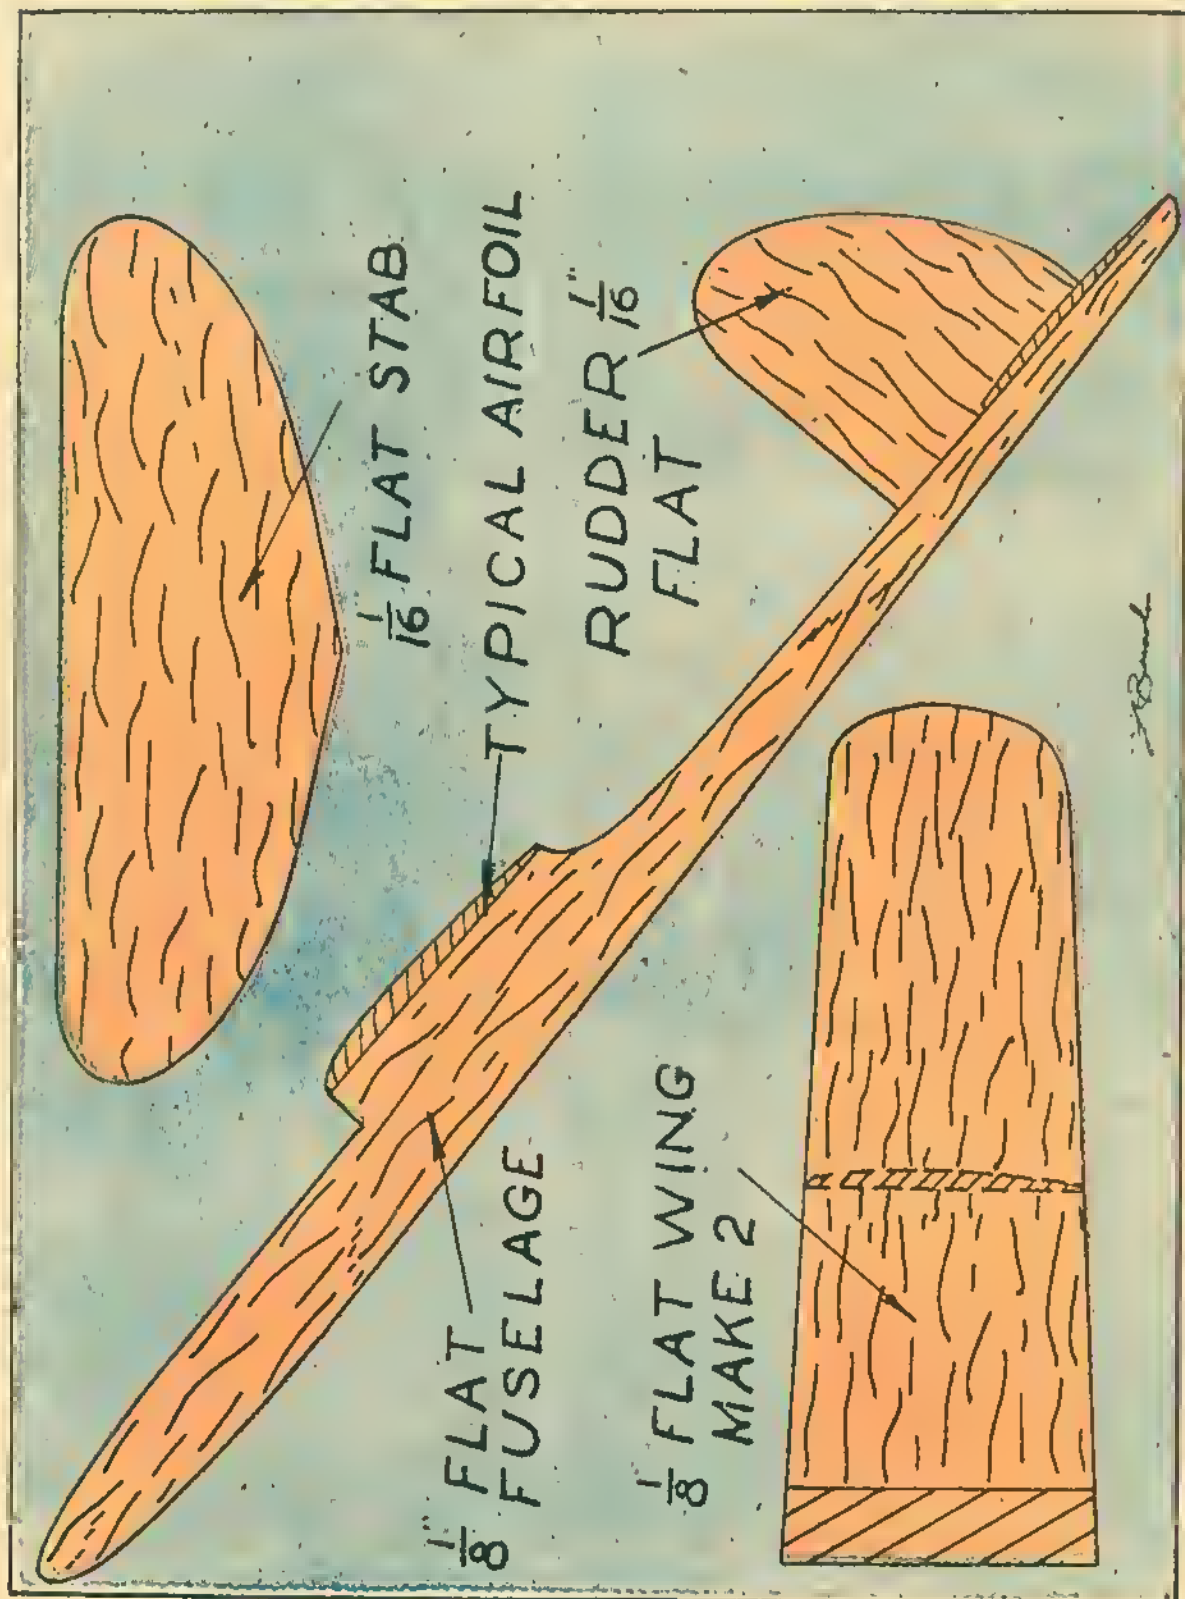 1/16 FLAT STAB.
TYPICAL AIRFOIL
RUDDER 1/16"
FLAT
1/8" FLAT
FUSELAGE
1/8 FLAT WING
MAKE 2